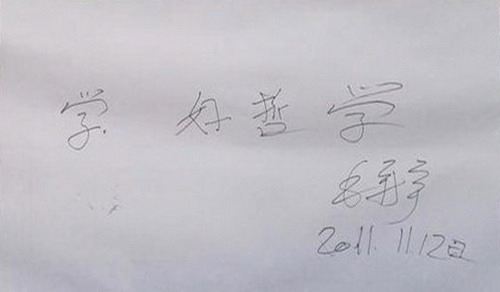 学好哲学
毛新宇
2011.11.12日